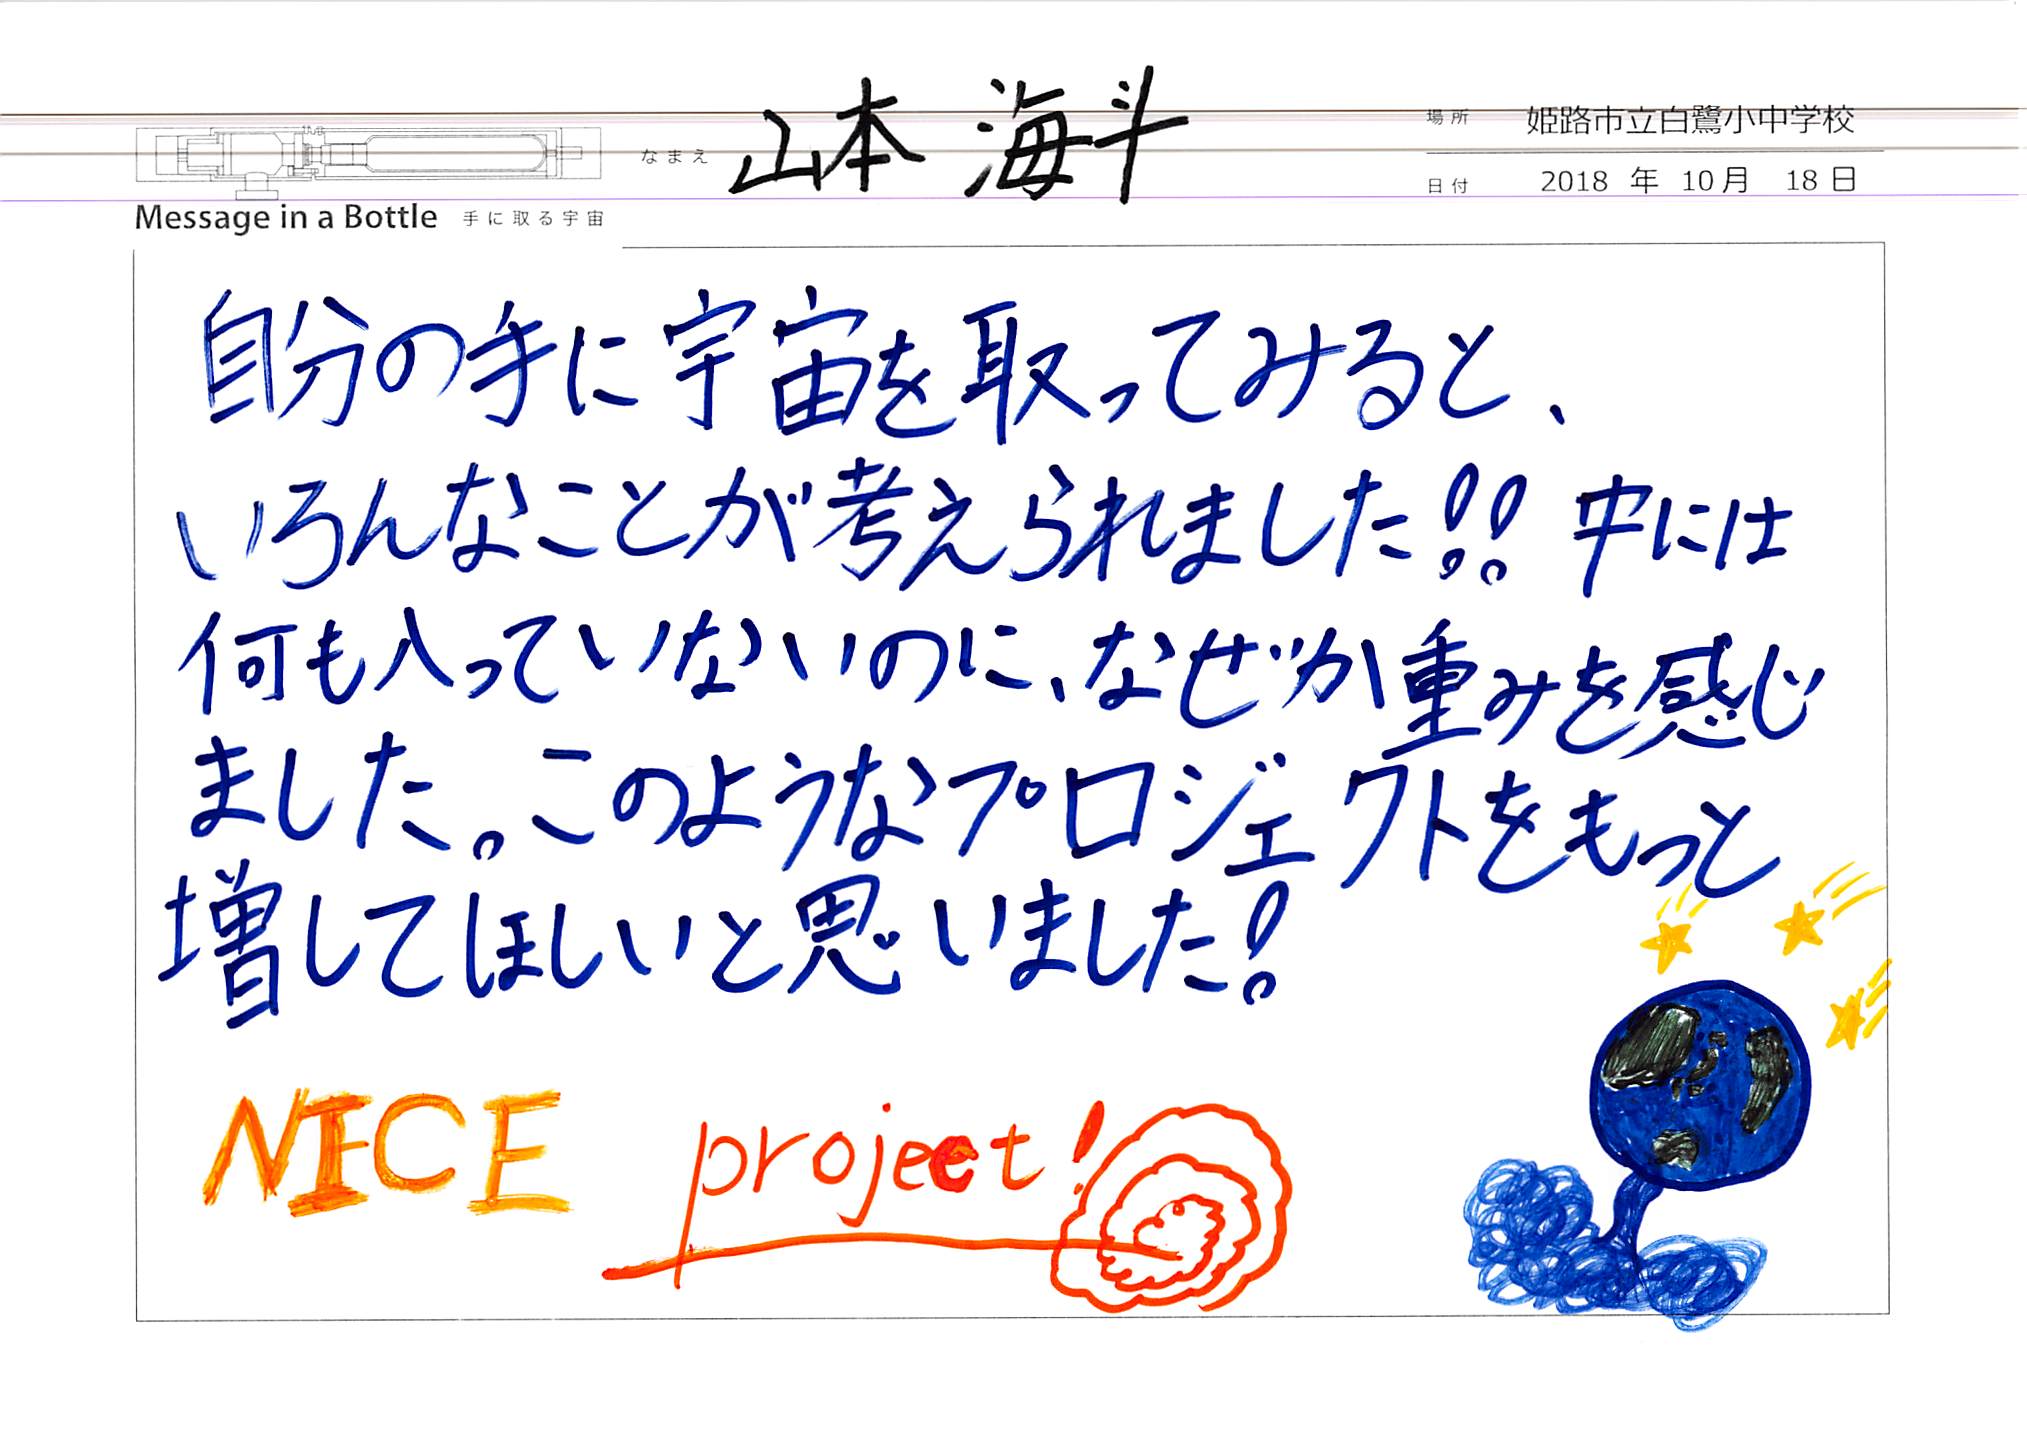 なまえ 山本 海斗
場所 姫路市立白鷺小中学校
日付 2018 年 10 月 18 日
Message in a Bottle 手に取る宇宙
自分の手に宇宙を取ってみると、
いろんなことが考えられました!! 中には
何も入っていないのに、なぜか重みを感じ
ました。このようなプロジェクトをもっと
増してほしいと思いました!
NICE project!